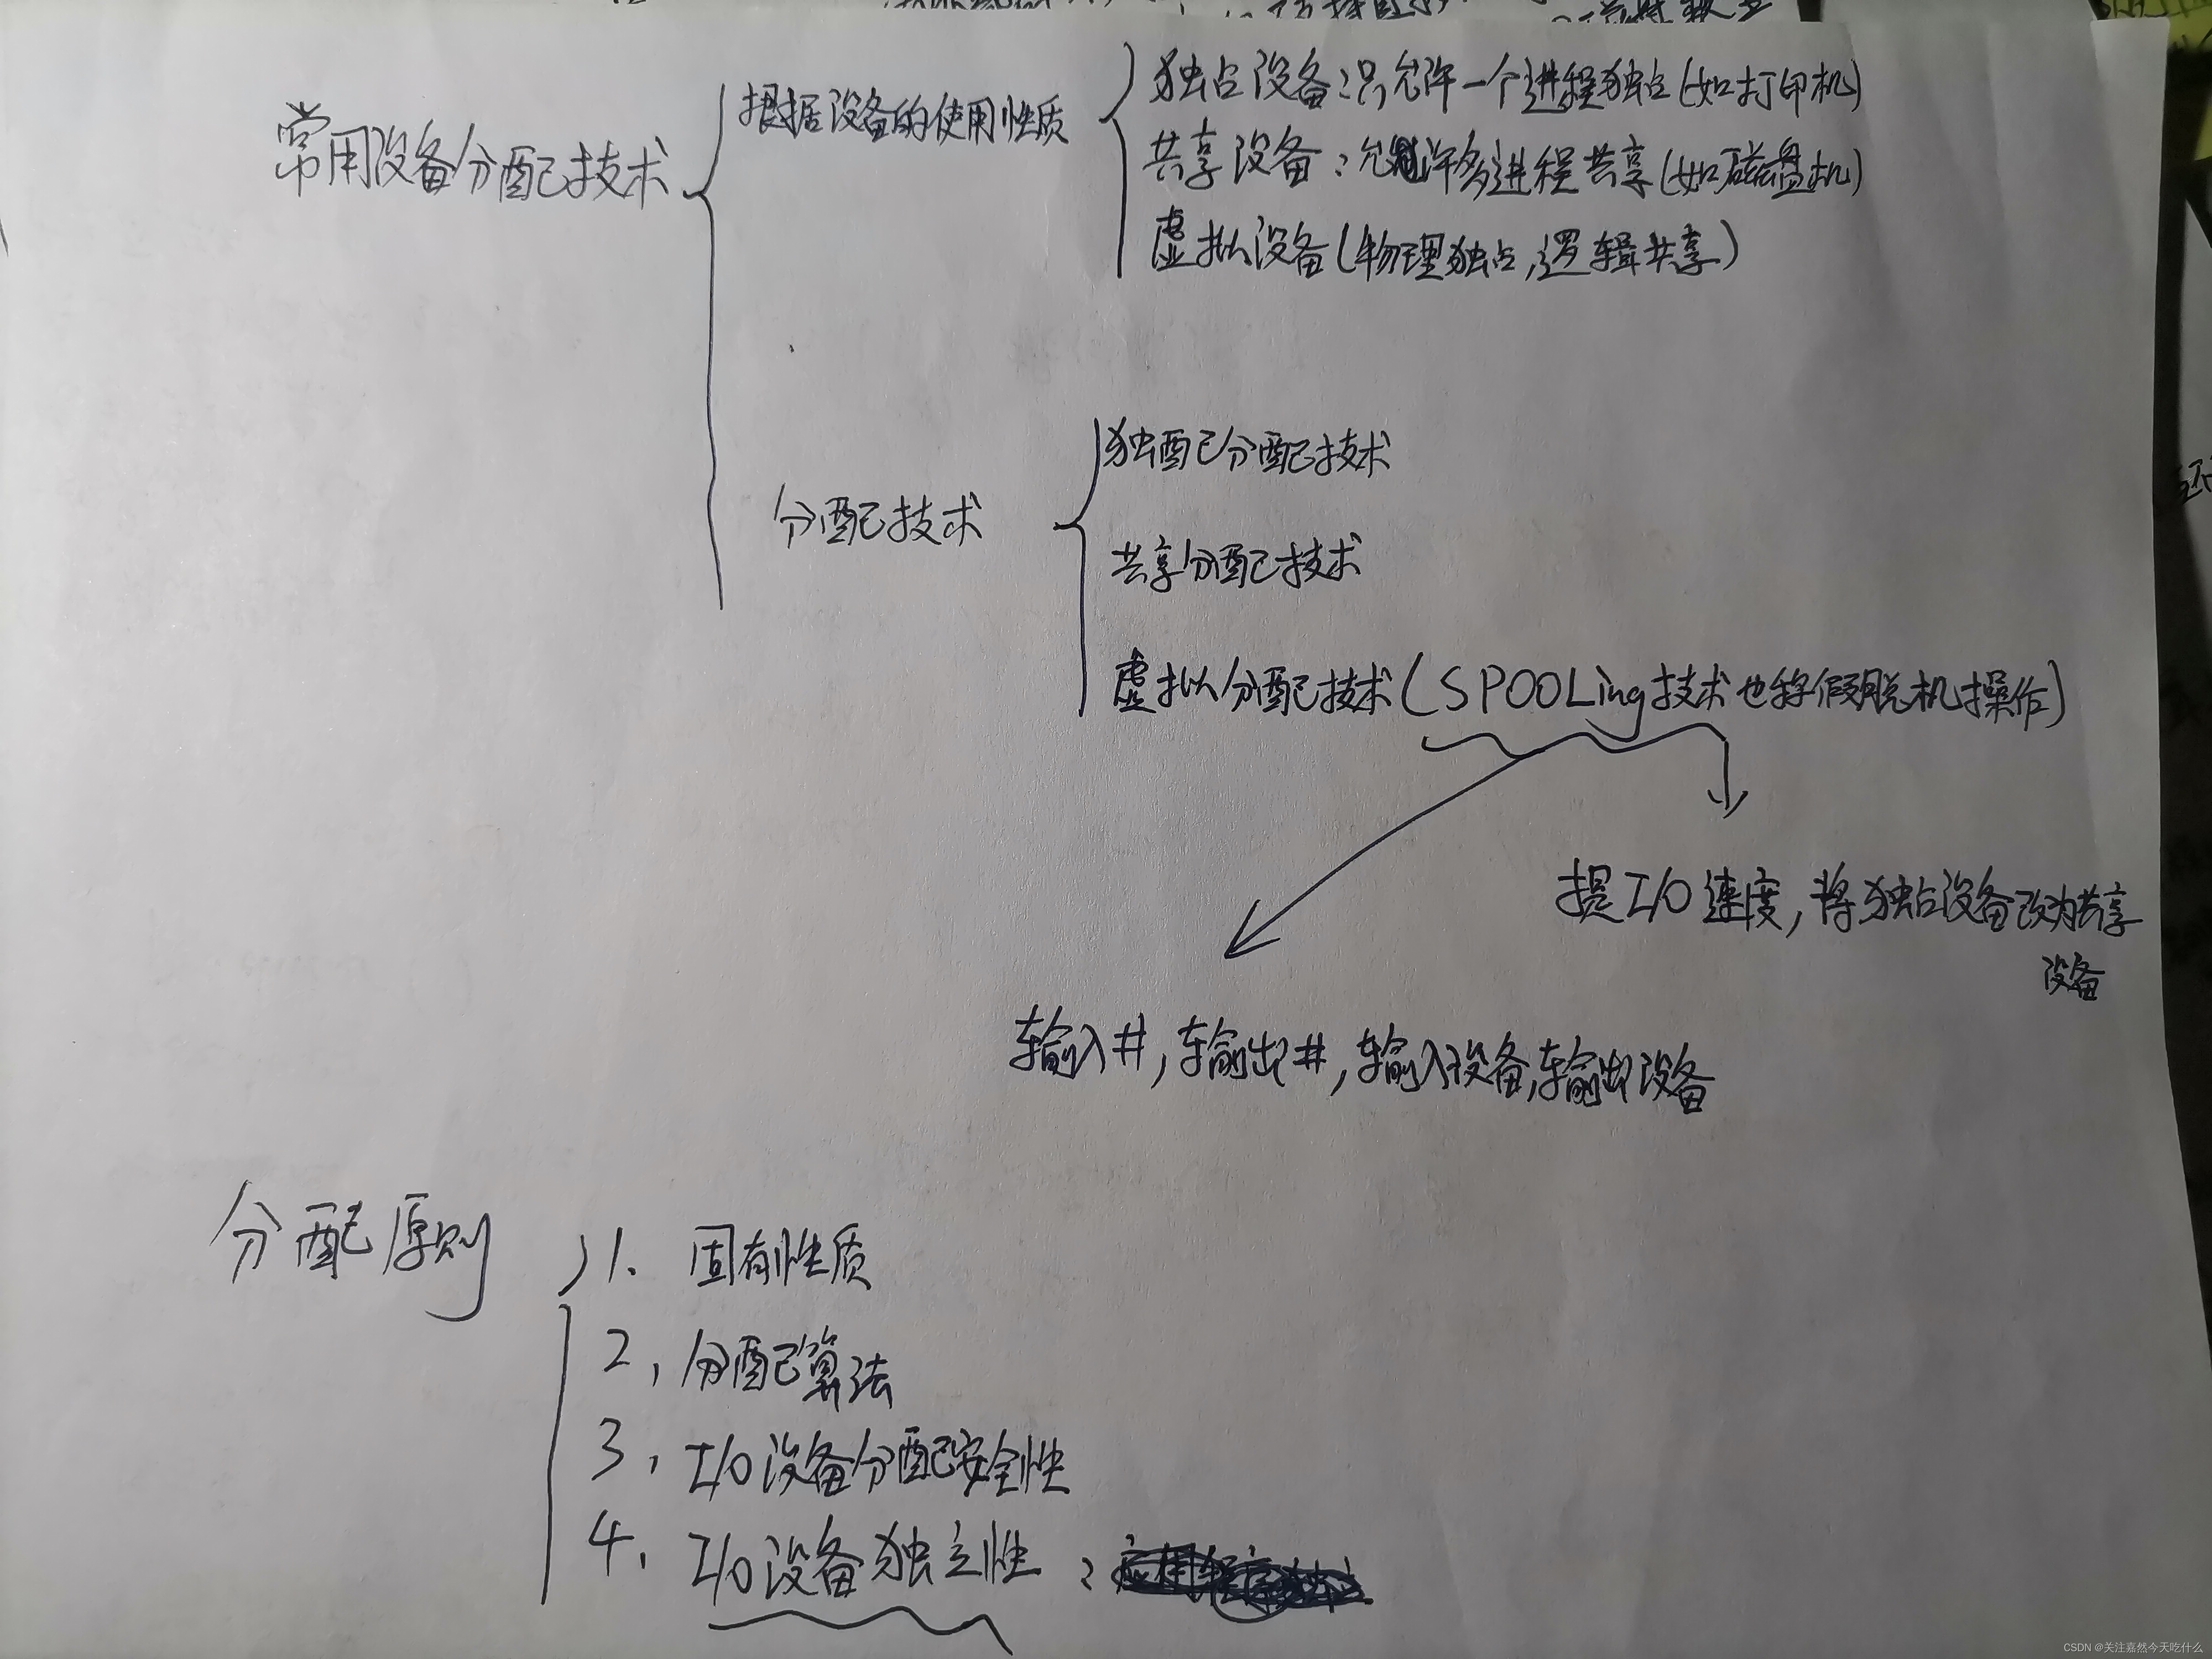 常用设备分配技术
根据设备的使用性质
独占设备：只允许一个进程独占(如打印机)
共享设备：允许多进程共享(如磁盘机)
虚拟设备(物理独占,逻辑共享)
分配技术
独配分配技术
共享分配技术
虚拟分配技术(SPOOLing技术也称假脱机操作)
提I/O速度,将独占设备改为共享
设备
输入井,输出井,输入设备,输出设备
分配原则
1. 固有性质
2, 分配算法
3, I/O设备分配安全性
4. I/O设备独立性：
CSDN @关注嘉然今天吃什么